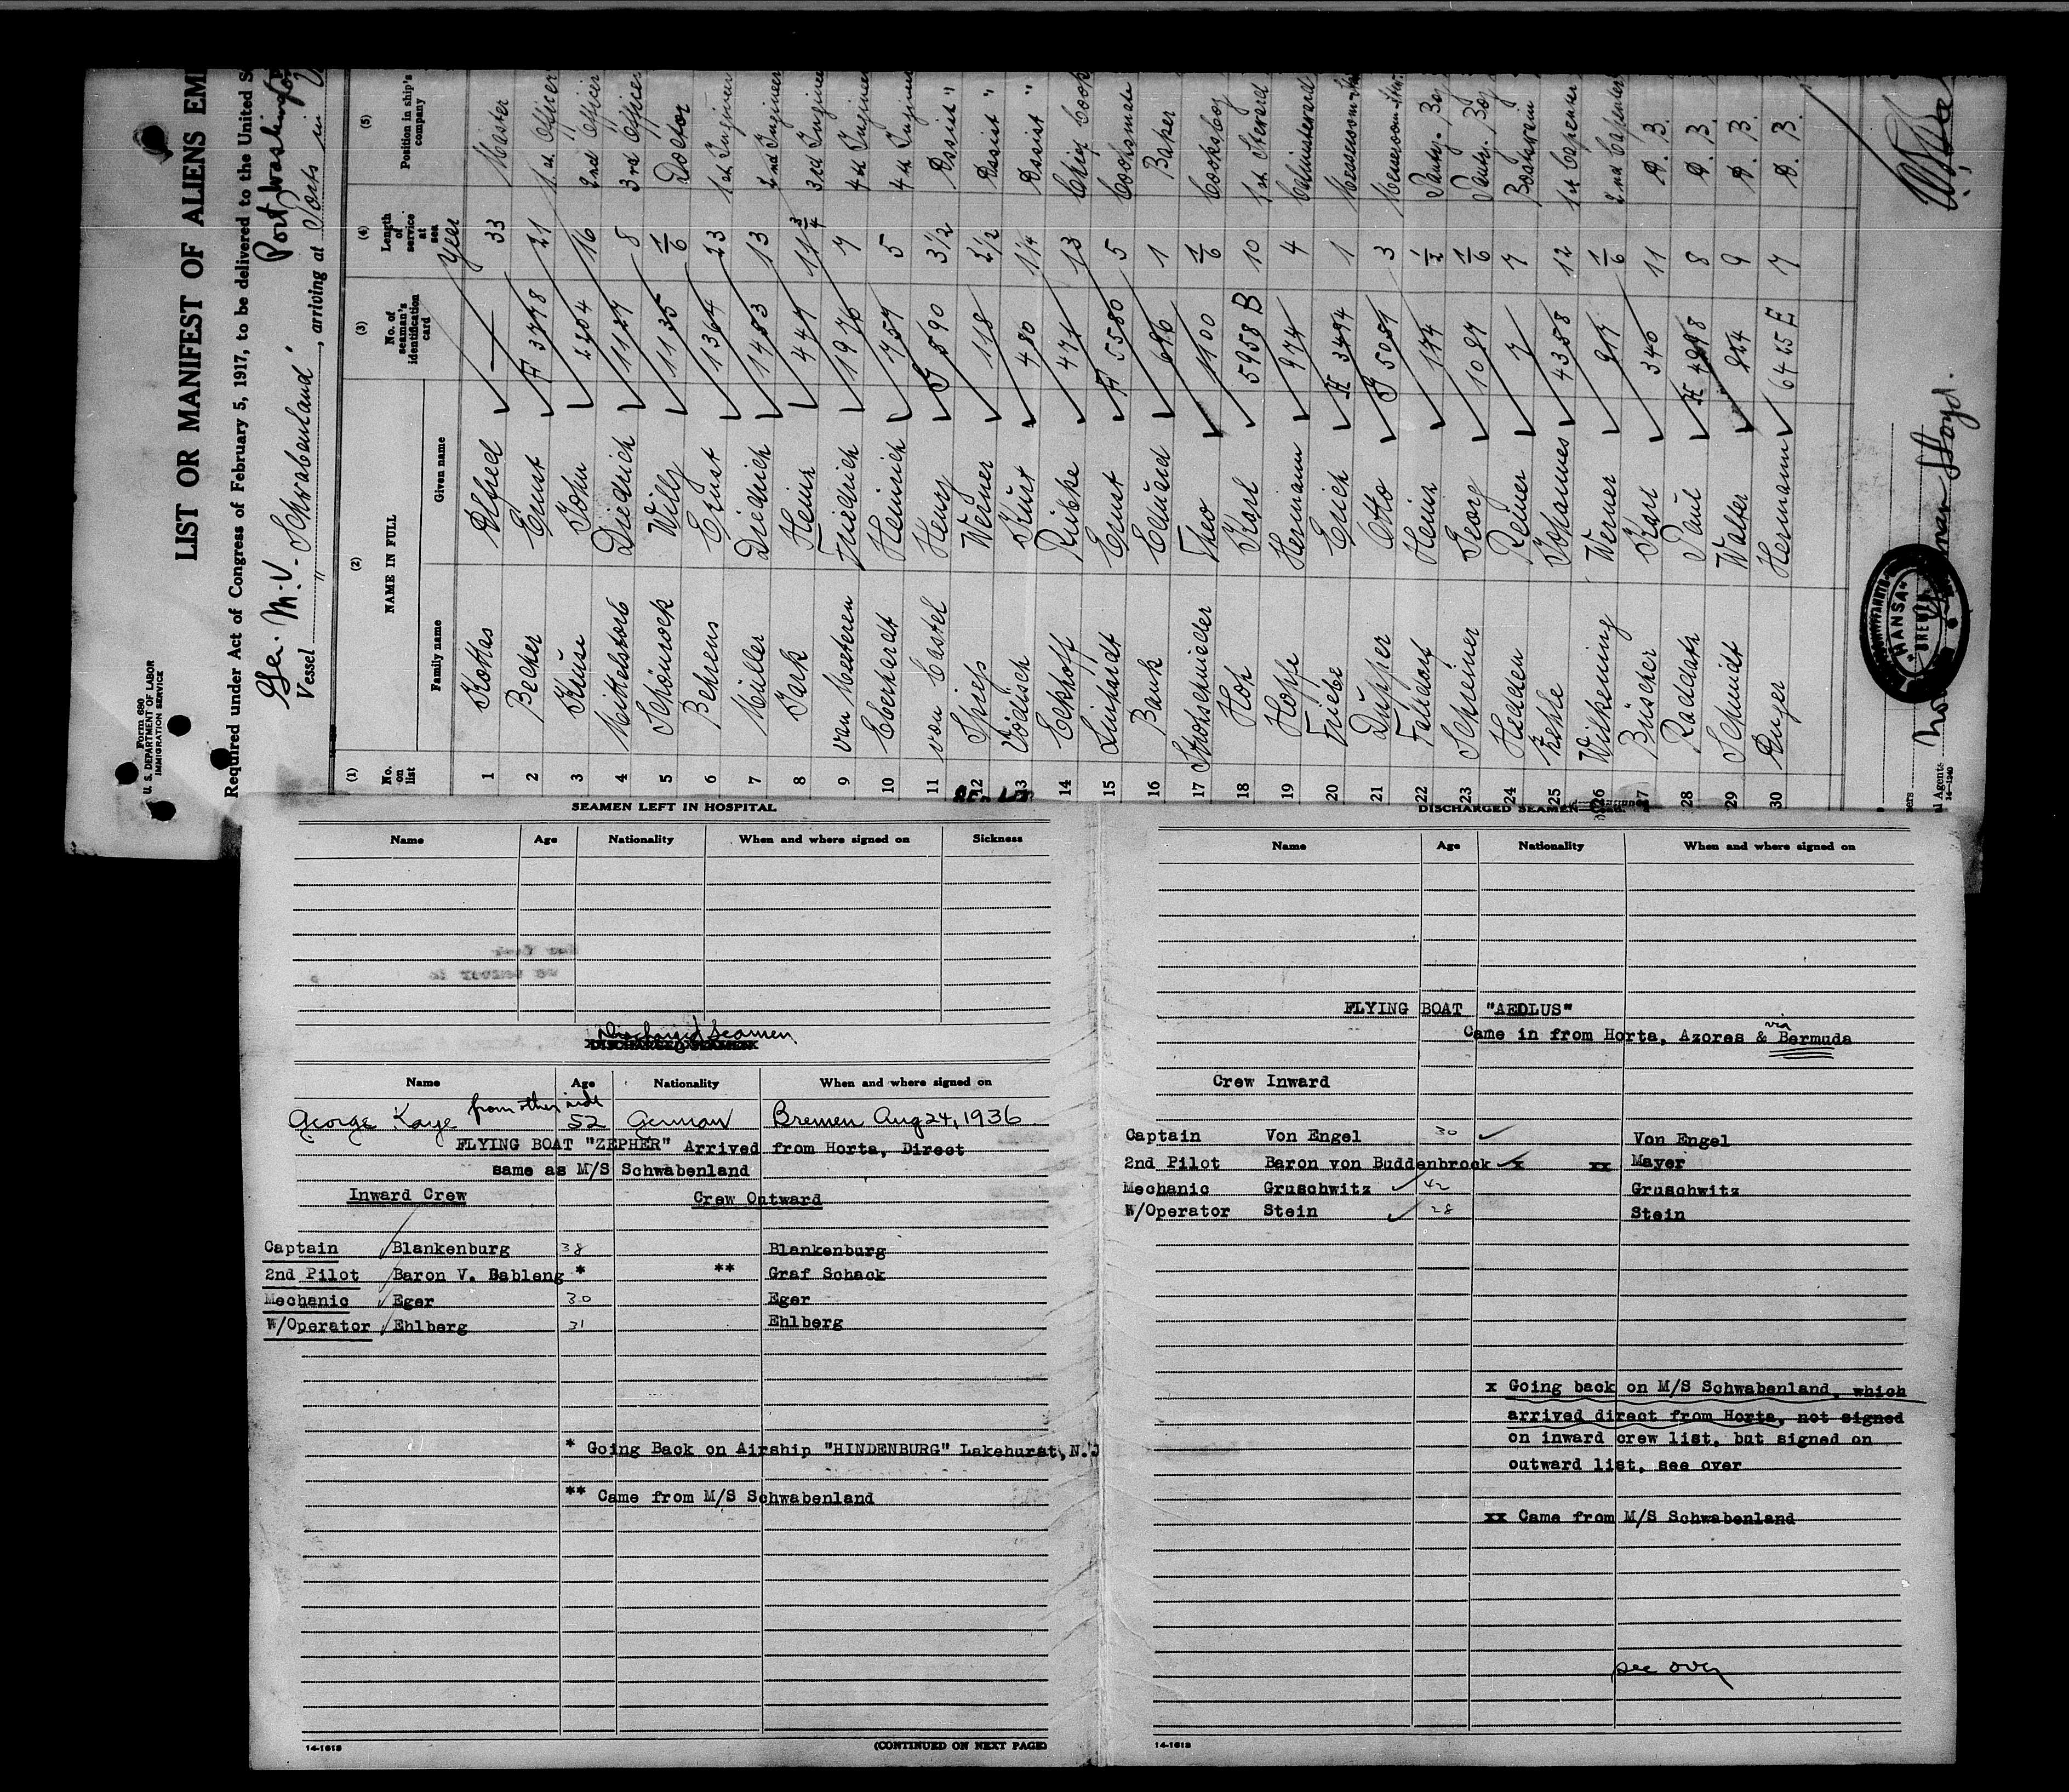 Form 680
U. S. DEPARTMENT OF LABOR
IMMIGRATION SERVICE
LIST OR MANIFEST OF ALIENS EM
Required under Act of Congress of February 5, 1917, to be delivered to the United S
Ger. M.V. Port Washington
Vessel " Schwabenland", arriving at Ports in
(1) (2) (3) (4) (5)
No. on list NAME IN FULL No. of seaman's identification card Length of service at sea Position in ship's company
Family name Given name
Year
1 Kottas Alfred — 33 Master
2 Becker Ernst A 3778 21 1st Officer
3 Kruse John 2204 16 2nd Officer
4 Mittelstorb Diedrich 1127 8 3rd Officer
5 Schönrock Willy 1135 1/6 Doctor
6 Behrens Ernst 1364 23 1st Ingineer
7 Müller Diedrich 1453 13 2nd Ingineer
8 Jark Heinr 447 11 3/4 3rd Ingineer
9 van Meeteren Friedrich 1976 7 4th Ingineer
10 Eberhardt Heinrich 757 5 4th Ingineer
11 von Castel Henry 590 3 1/2 Assist "
12 Spieß Werner 118 2 1/2 Assist "
13 Vödisch Knut 480 1 1/4 Assist "
14 Eckhoff Ribke 471 13 Chief Cook
15 Linhardt Ernst A 5580 5 Cooksmate
16 Bank Eduard 686 1 Baker
17 Strohschnieder Theo 1100 1/6 Cooksboy
18 Hoh Karl 5958 B 10 1st Steward
19 Hoppe Hermann 974 4
20 Friebe Erich H 3494 1
21 Düpper Otto 5081 3
22 Falldorf Heinr 174 1/2 Pantr. Boy
23 Schreiner Georg 1087 1/6 Pantr. Boy
24 Hedden Reiner 7 7 Boatswain
25 Kehle Johannes 4358 12 1st Carpenter
26 Wilkening Werner 217 1/6 2nd Carpenter
27 Brüscher Karl 340 11 A. B.
28 Raddatz Paul H 4898 8 A. B.
29 Schmidt Walter 9 A. B.
30 Unger Hermann 6425 E 7 A. B.
HANSA
BREMEN
l Agents North German Lloyd.
14-1240
SEAMEN LEFT IN HOSPITAL
Name Age Nationality When and where signed on Sickness
Discharged Seamen
DISCHARGED SEAMEN
Name Age Nationality When and where signed on
from other side
George Kaye 52 German Bremen Aug 24, 1936
FLYING BOAT "ZEPHER" Arrived from Horta, Direct
same as M/S Schwabenland
Inward Crew Crew Outward
Captain Blankenburg 38 Blankenburg
2nd Pilot Baron V. Gableng * ** Graf Schack
Mechanic Eger 30 Eger
W/Operator Ehlberg 31 Ehlberg
* Going Back on Airship "HINDENBURG" Lakehurst, N.J
** Came from M/S Schwabenland
14-1618
(CONTINUED ON NEXT PAGE)
DISCHARGED SEAMEN
Name Age Nationality When and where signed on
FLYING BOAT "AEOLUS"
via
Came in from Horta, Azores & Bermuda
Crew Inward
Captain Von Engel 30 Von Engel
2nd Pilot Baron von Buddenbrock x xx Mayer
Mechanic Gruschwitz 42 Gruschwitz
W/Operator Stein 28 Stein
x Going back on M/S Schwabenland, which
arrived direct from Horta, not signed
on inward crew list, but signed on
outward list, see over
xx Came from M/S Schwabenland
see over
14-1618